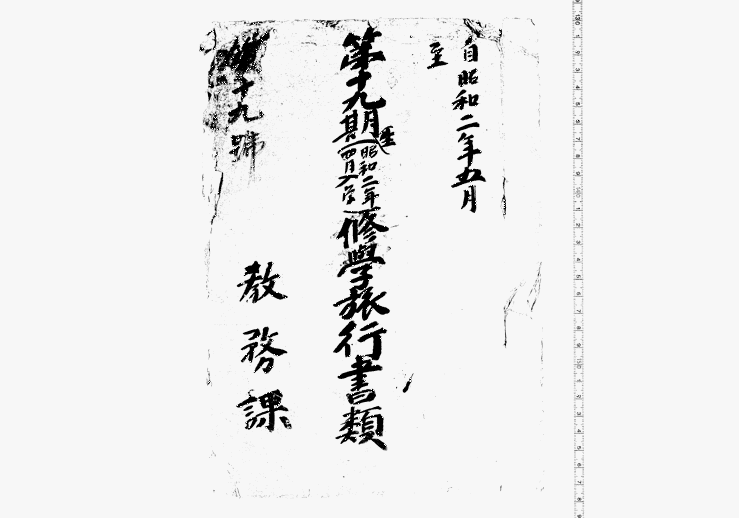 自昭和二年五月
至
第十九期生(昭和二年四月入学)修學旅行書類
第十九號
教務課